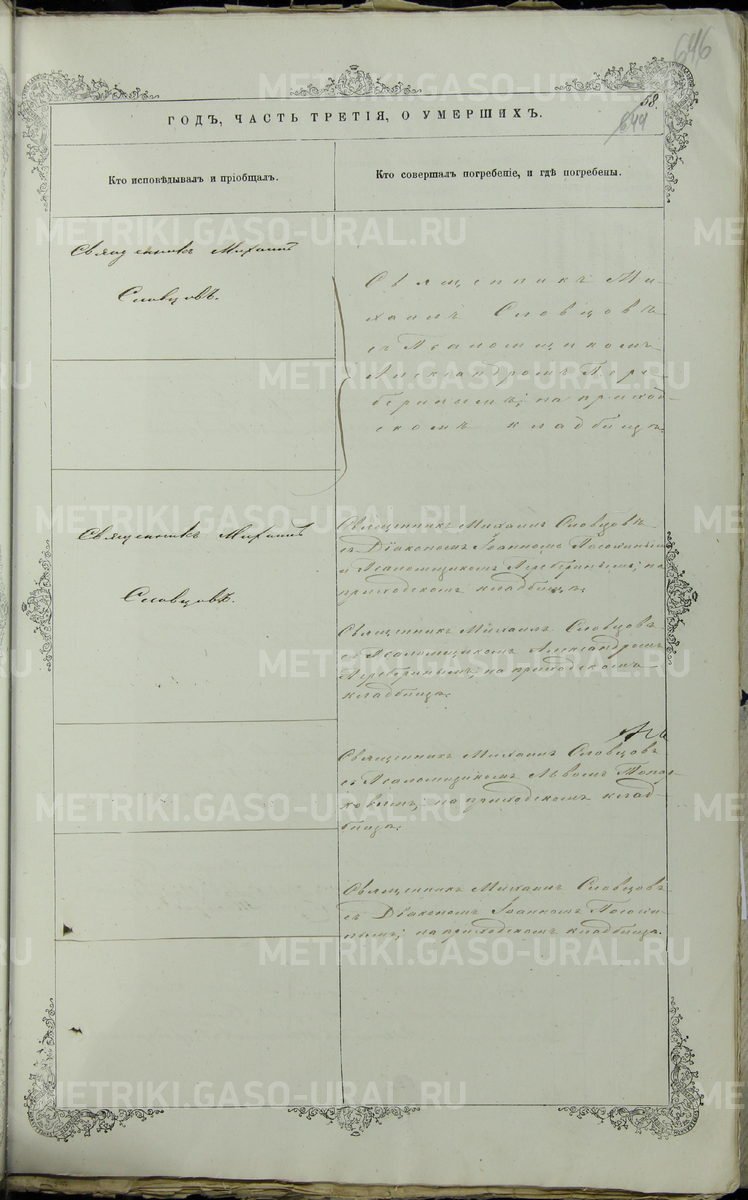 646
58.
644
ГОДЪ, ЧАСТЬ ТРЕТІЯ, О УМЕРШИХЪ.
Кто исповѣдывалъ и пріобщалъ.
Кто совершалъ погребеніе, и гдѣ погребены.
Священникъ Михаилъ
Словцовъ.
Священникъ Ми-
хаилъ Словцовъ
съ Псаломщикомъ
Александромъ Пере-
беринымъ; на приход-
скомъ кладбищѣ.
Священникъ Михаилъ
Словцовъ.
Священникъ Михаилъ Словцовъ
съ Діакономъ Іоанномъ
и Псаломщикомъ Переберинымъ; на
приходскомъ кладбищѣ.
Священникъ Михаилъ Словцовъ
съ Псаломщикомъ Александромъ
Переберинымъ; на приходскомъ
кладбищѣ.
Священникъ Михаилъ Словцовъ
съ Псаломщикомъ Львомъ Топор-
ковымъ; на приходскомъ клад-
бищѣ.
Священникъ Михаилъ Словцовъ
съ Діакономъ Іоанномъ
нымъ; на приходскомъ кладбищѣ.
METRIKI.GASO-URAL.RU